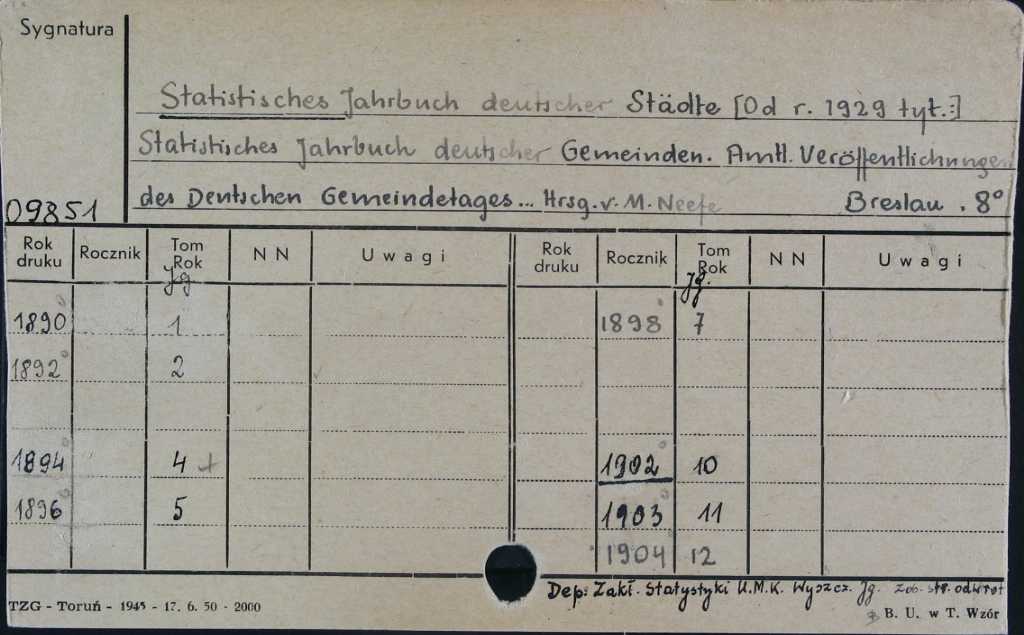 Sygnatura
Statistisches Jahrbuch deutscher Städte [Od r. 1929 tyt.:]
Statistisches Jahrbuch deutscher Gemeinden. Amtl. Veröffentlichungen
des Deutschen Gemeindetages... Hrsg. v. M. Neefe Breslau . 8°
09851
Rok druku Rocznik Tom Rok Jg N N Uwagi Rok druku Rocznik Tom Rok Jg. N N Uwagi
1890 1 1898 7
1892 2
1894 4 + 1902 10
1896 5 1903 11
1904 12
Dep: Zakł. Statystyki U.M.K. Wyszcz. Jg. zob. str. odwrot
TZG - Toruń - 1945 - 17. 6. 50 - 2000 B. U. w T. Wzór